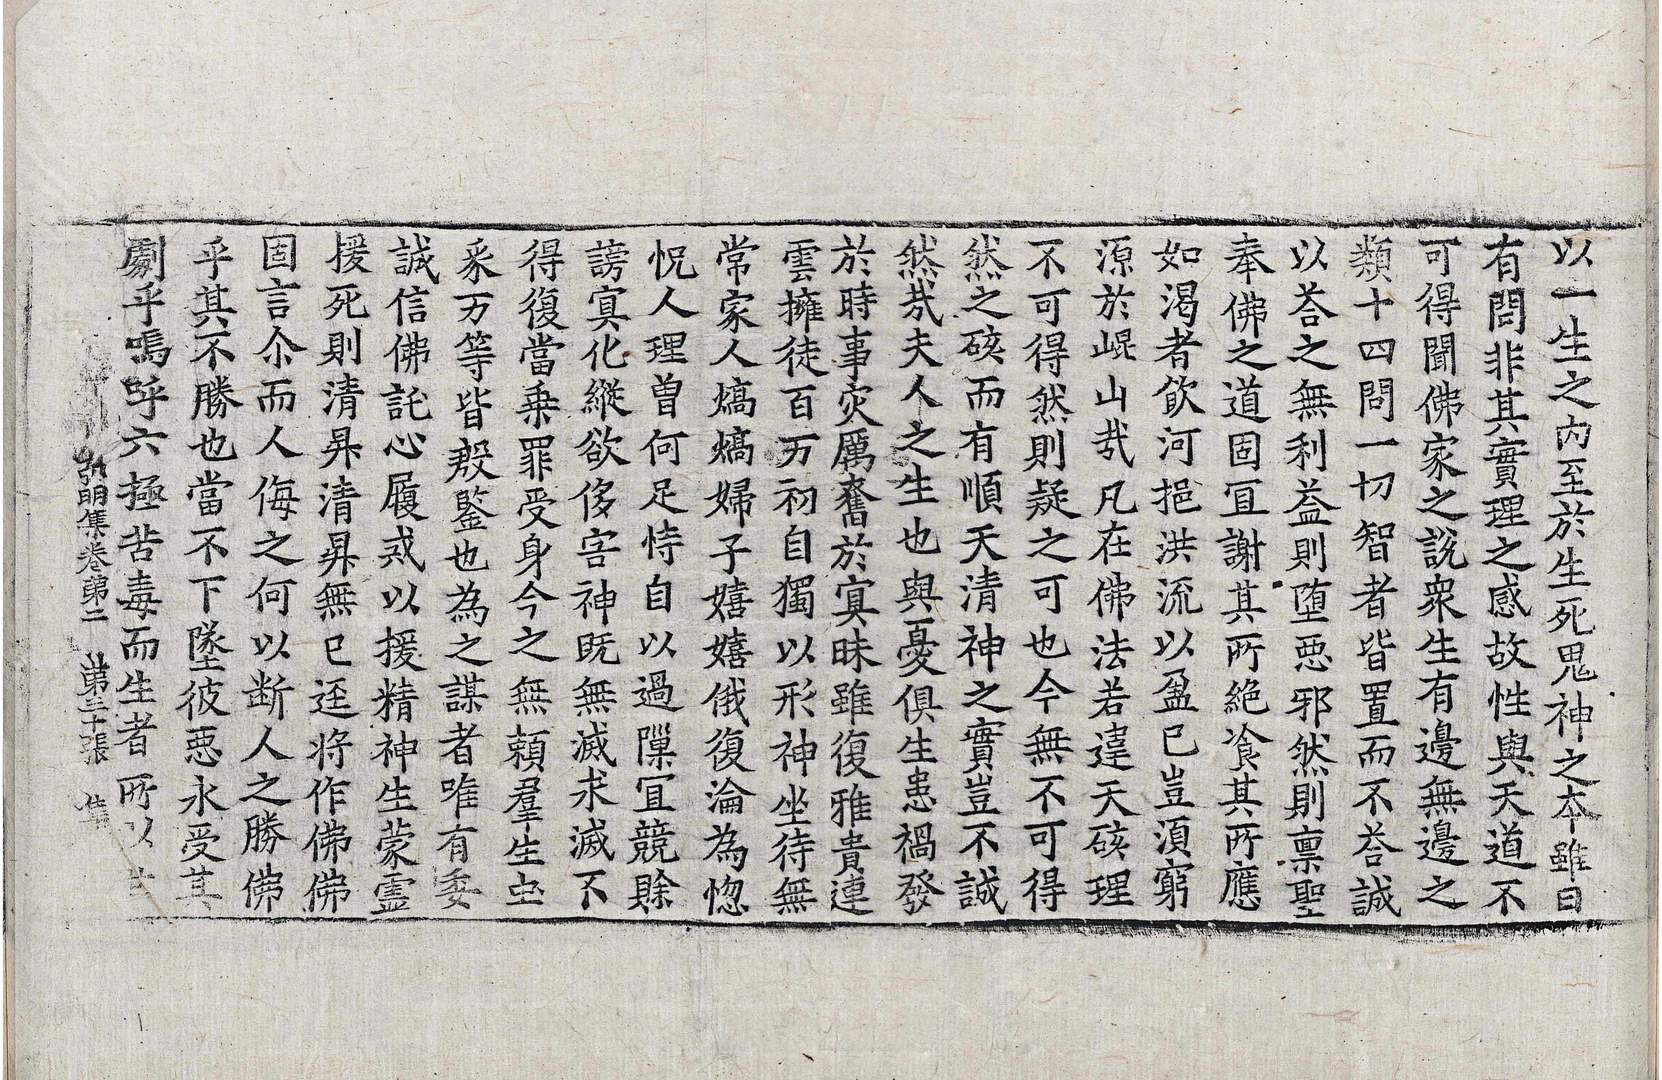 以一生之内至於生死鬼神之本雖曰
有問非其實理之感故性與天道不
可得聞佛家之說衆生有邊無邊之
類十四問一切智者皆置而不荅誠
以荅之無利益則堕惡邪然則禀聖
奉佛之道固冝謝其所絕飡其所應
如渴者飲河挹洪流以盈已豈湏窮
源於崐山哉凡在佛法若違天硋理
不可得然則疑之可也今無不可得
然之硋而有順天清神之實豈不誠
然㢤夫人之生也與憂俱生患禍發
於時事灾厲奮於寘昧雖復雅貴連
雲擁徒百万初自獨以形神坐待無
常家人熇熇婦子嬉嬉俄復淪為惚
怳人理曽何足恃自以過隟冝競賖
謗寘化縱欲侈害神既無滅求滅不
得復當乗罪受身今之無頼羣生䖝
豸万等皆殷鑒也為之謀者唯有委
誠信佛託心履戒以援精神生蒙霊
援死則清昇清昇無已逕将作佛佛
固言尒而人侮之何以断人之勝佛
乎其不勝也當不下墜彼惡永受其
劇乎嗚呼六極苦毒而生者所以
弘明集卷第二　第三十張　集